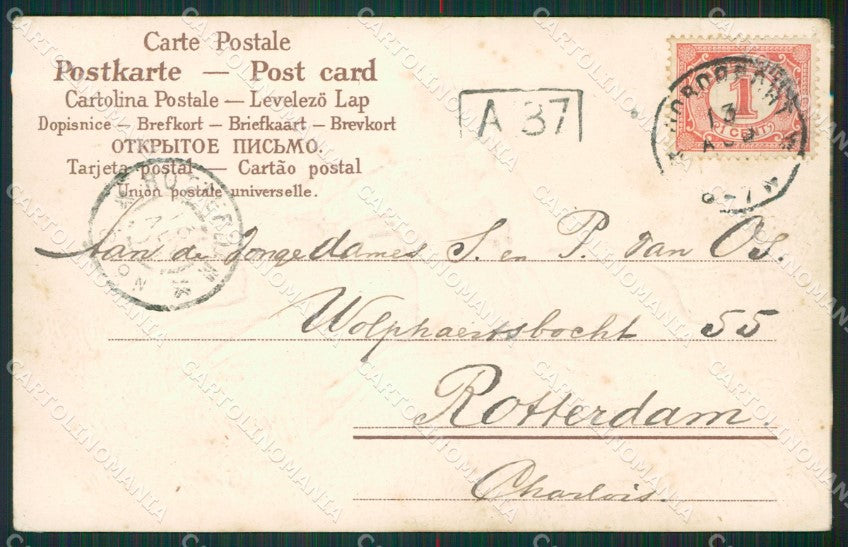 Carte Postale
Postkarte — Post card
Cartolina Postale — Levelezö Lap
Dopisnice — Brefkort — Briefkaart — Brevkort
ОТКРЫТОЕ ПИСЬМО.
Tarjeta postal — Cartão postal
Union postale universelle.
A 37
1
CENT
13
8-7 N
Aan de Jongedames S. en P. van Os.
Wolphaertsbocht 55
Rotterdam.
Charlois.
CARTOLINOMANIA